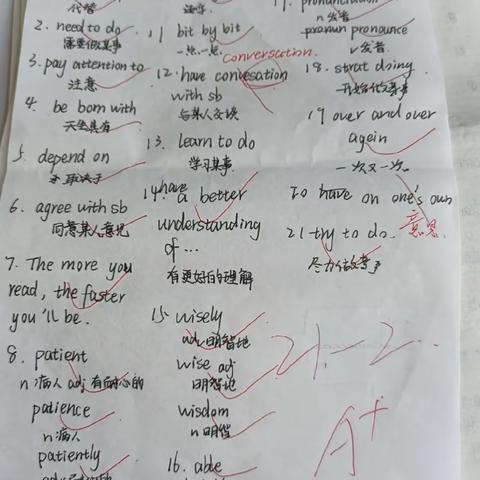 代替
2. need to do
需要做某事
3. pay attention to
注意
4. be born with
天生具有
5. depend on
取决于
6. agree with sb
同意某人意见
7. The more you
read, the faster
you'll be.
8. patient
n 病人 adj 有耐心的
patience
n 病人
patiently
11 bit by bit
一点一点
conversation.
12. have convesation
with sb
与某人交谈
13. learn to do
学习某事
14. have a better
understanding
of ...
有更好的理解
15. wisely
adv 明智地
wise adj
明智地
wisdom
n 明智
16. able
17. pronunciation
n 发音
pronoun pronounce
v 发音
18. strat doing
开始做某事
19 over and over
agein
一次又一次
20 have on one's own
意思
21 try to do.
尽力做
21. -2..
A+